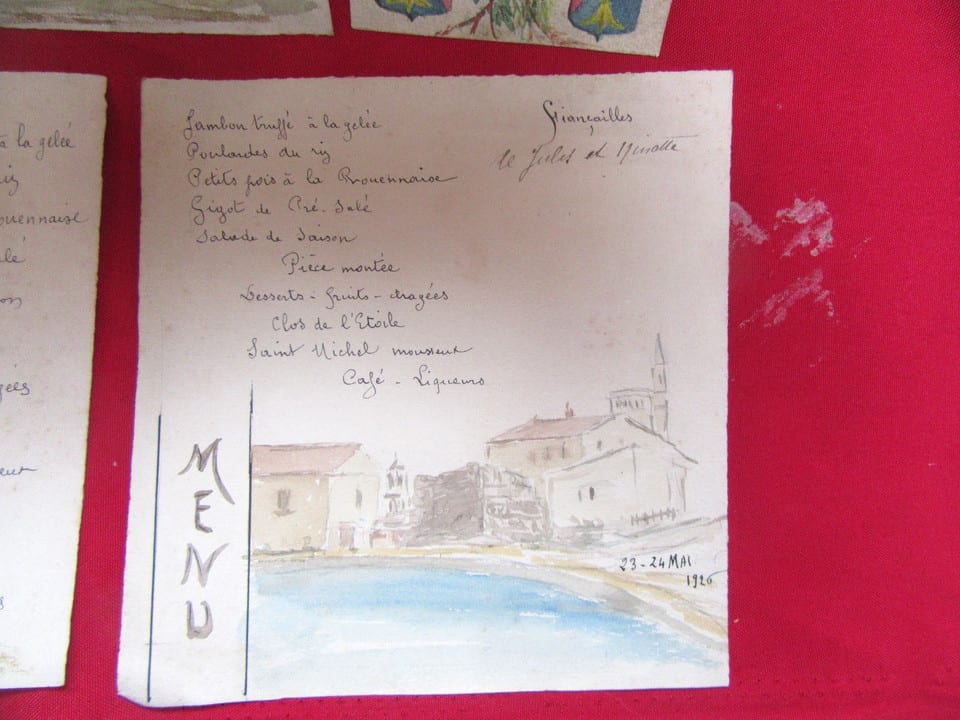 Jambon truffé à la gelée
Poulardes du riz
Petits pois à la Rouennaise
Gigot de Pré-Salé
Salade de Saison
Pièce montée
Desserts - fruits - dragées
Clos de l'Etoile
Saint Michel mousseux
Café - Liqueurs
Fiançailles
de Jules et
MENU
23-24 MAI
1926
à la gelée
riz
ouennaise
lé
on
gées